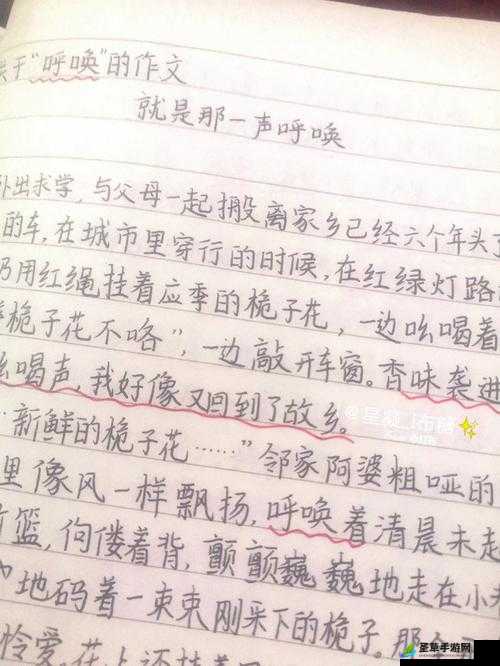 关于“呼唤”的作文
就是那一声呼唤
外出求学,与父母一起搬离家乡已经六个年头了
的车,在城市里穿行的时候,在红绿灯路
用红绳挂着应季的桅子花,一边吆喝着
桅子花不咯”,一边敲开车窗。香味袭进
吆喝声,我好像又回到了故乡。
新鲜的桅子花……”邻家阿婆粗哑的
里像风一样飘扬,呼唤着清晨未起
篮,佝偻着背,颤颤巍巍地走在小
地码着一束束刚采下的桅子。那
怜爱,花上还挂着
星草手游网